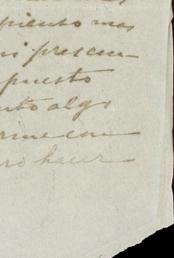 piento mas
ni presen
puesto
nto algo
rme con
ro hacer